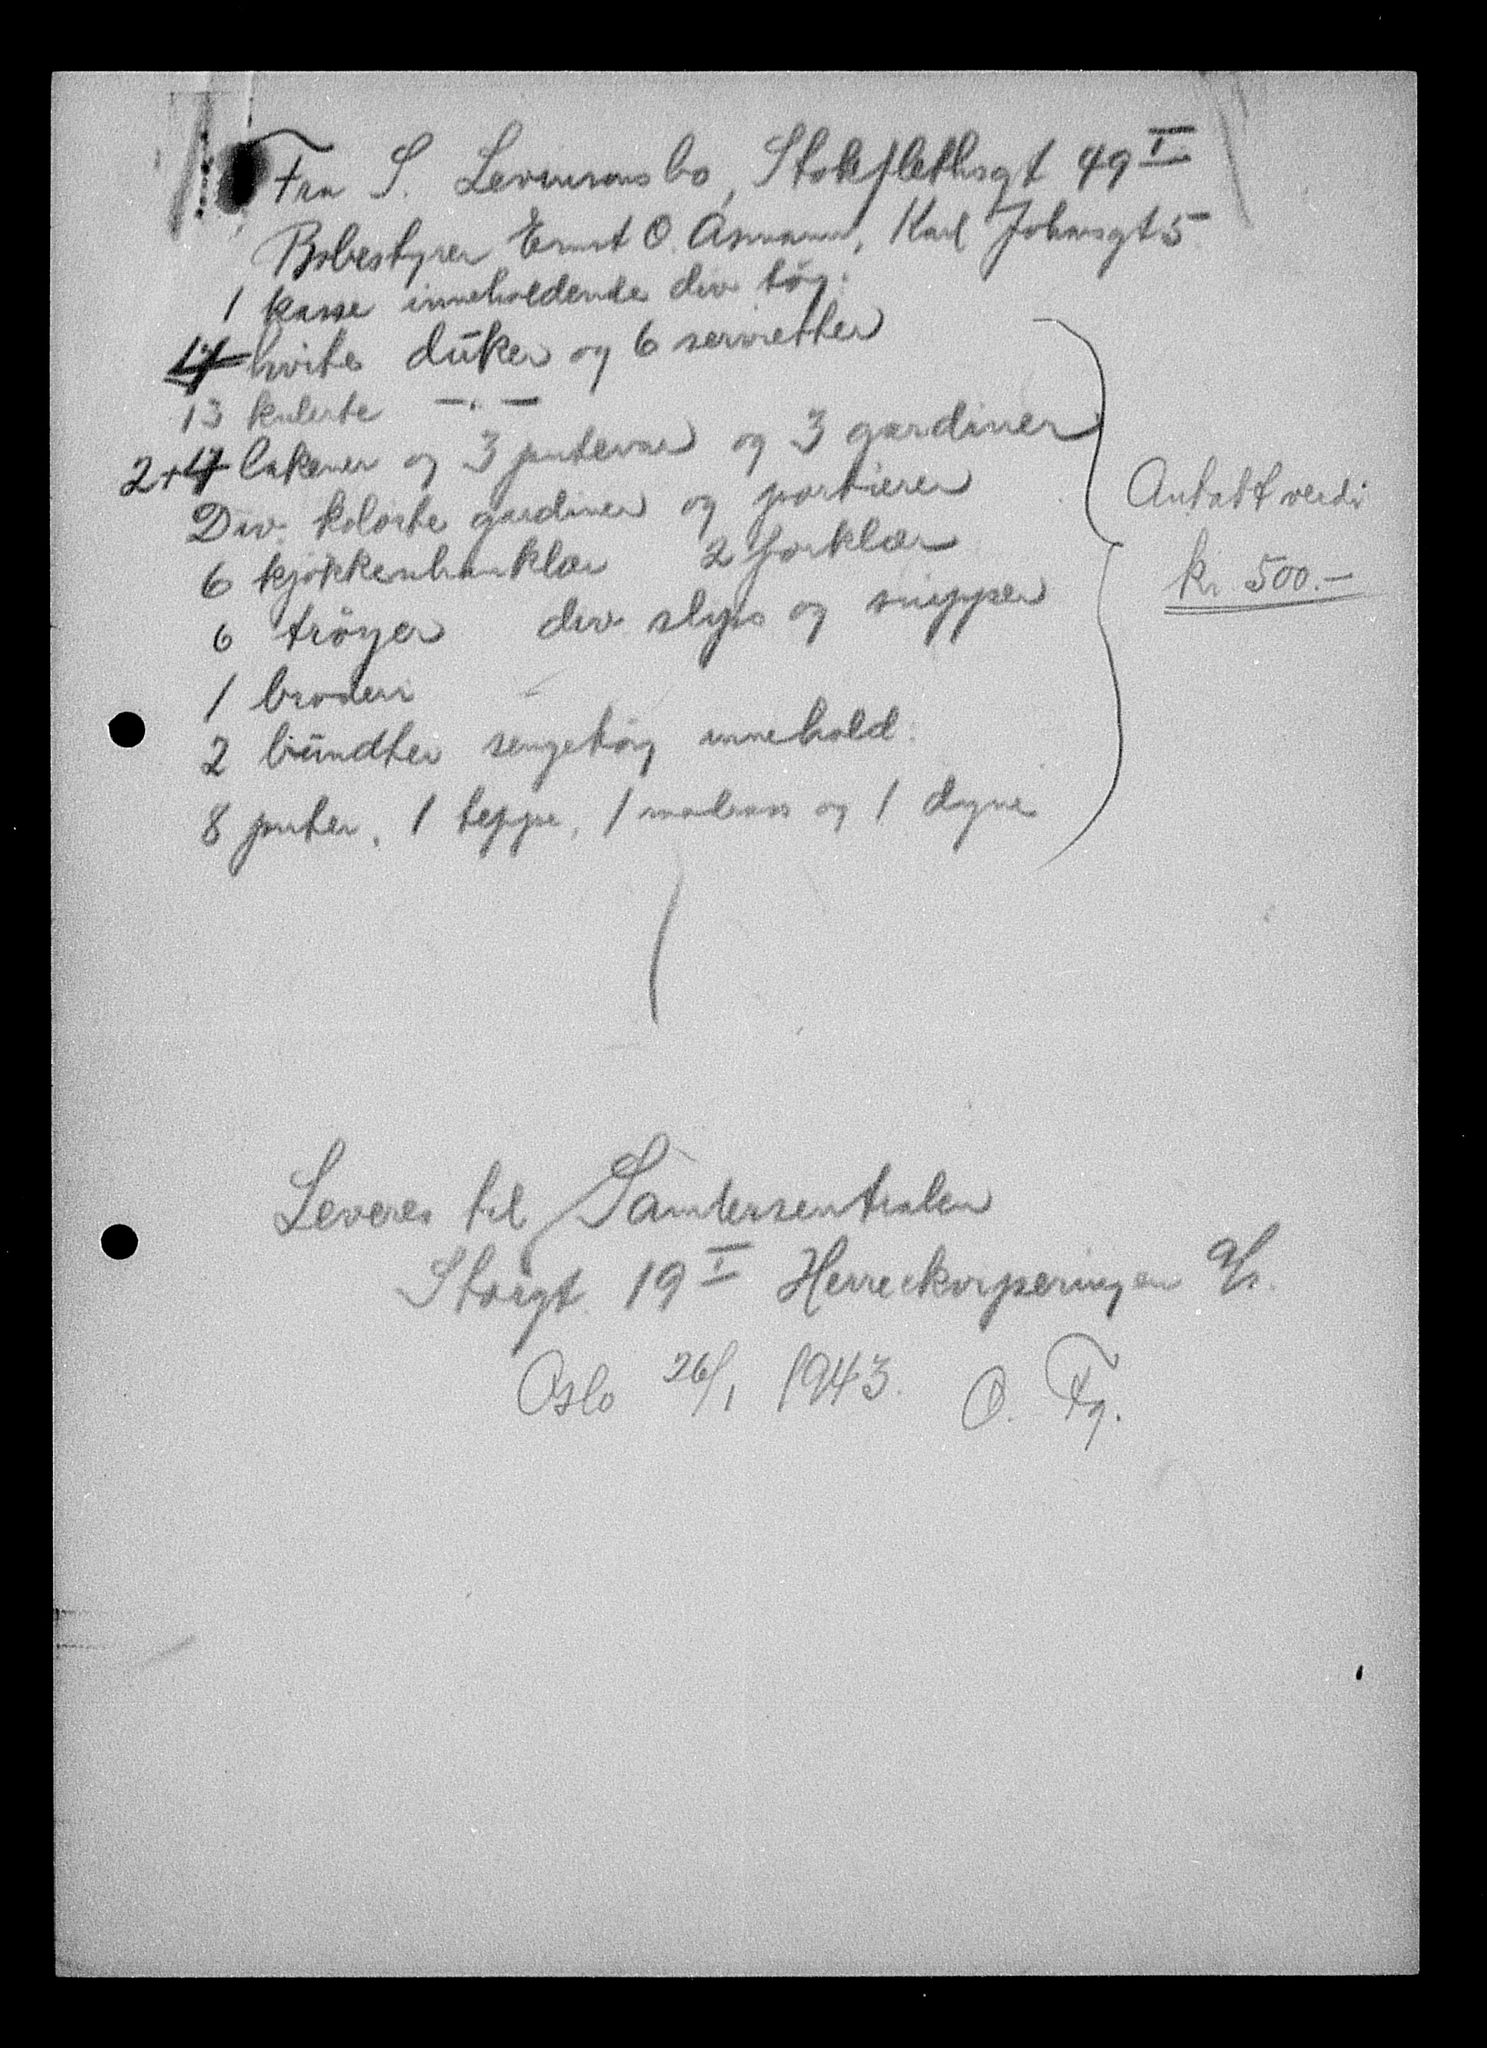 Fra S. Levinsons bo, Stokflethsgt 49 I
Bobestyrer Ernst O. Asmann, Karl Johansgt 5
1 kasse inneholdende div töy:
17 hvite dúker og 6 servietter
13 kulerte —〃—
2+4 lakener og 3 putevar og 3 gardiner
Div. kolörte gardiner og portierer
6 kjökkenhånklær 2 forklær
6 tröyer div slips og snipper
1 broderi
2 búndter sengetöy innehold:
8 puter, 1 teppe, 1 madrass og 1 dyne
Antatt verdi
kr 500.—
Leveres til Samlersentralen
Storgt. 19 I Herreekviperingen A/s.
Oslo 26/1 1943. O. Fg.